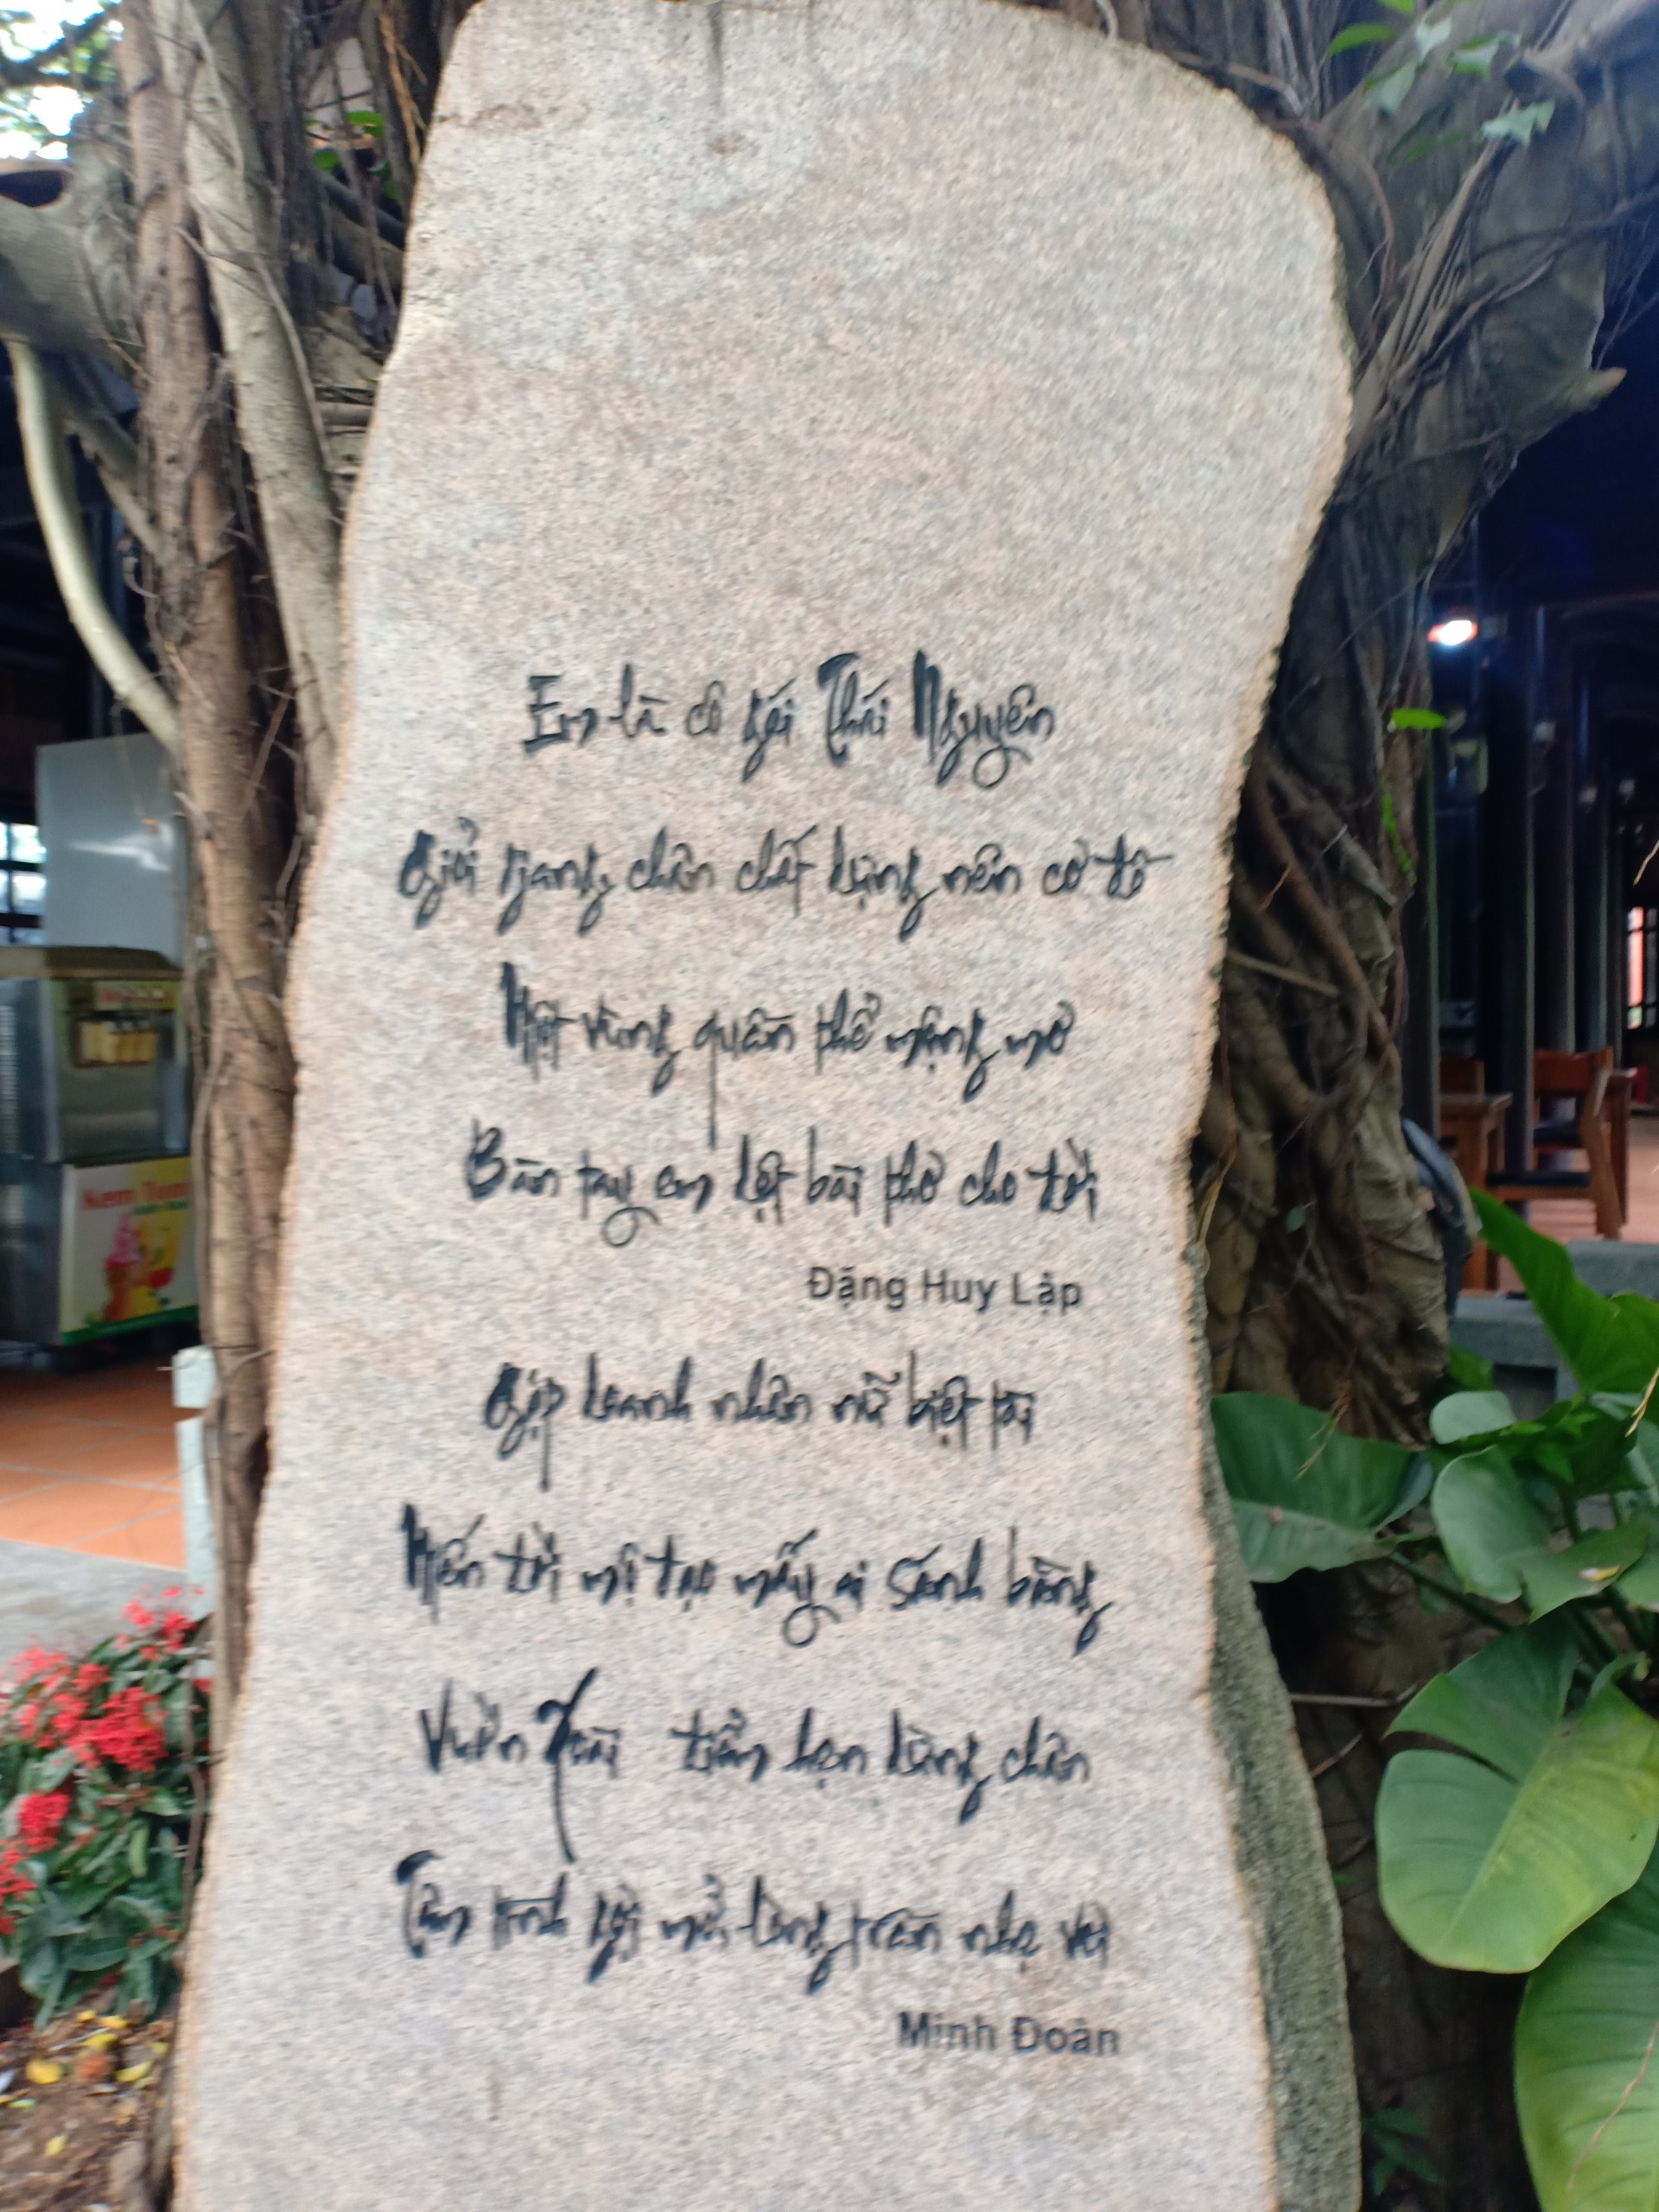 Em là cô gái Thái Nguyên
Giỏi giang chân chất dựng nên cơ đồ
Một vùng quần thể mộng mơ
Bàn tay em dệt bài thơ cho đời
Đặng Huy Lập
Gặp doanh nhân nữ biệt tài
Mến đời mị tạo mấy ai sánh bằng
Vườn Xoài tiễn bạn dừng chân
Tâm tình gợi mở lòng trần nhẹ vơi
Minh Đoàn
Kem Tươi